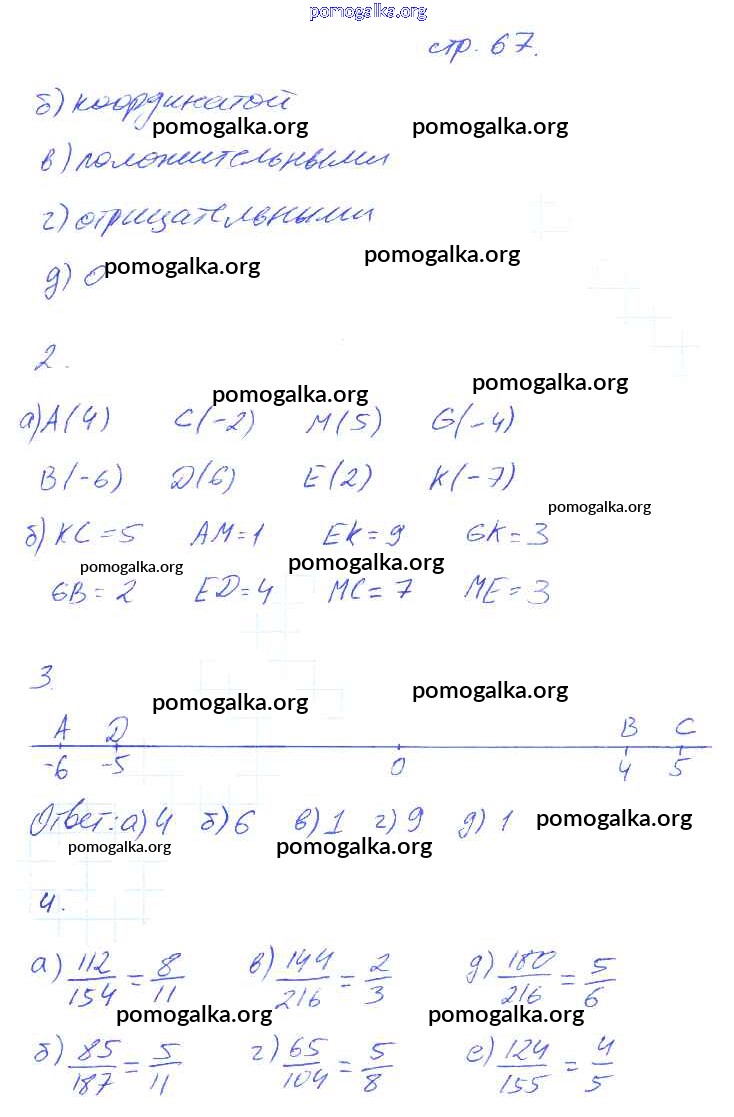 pomogalka.org
стр. 67.
б) координатой
pomogalka.org pomogalka.org
в) положительными
г) отрицательными
pomogalka.org
д) 0 pomogalka.org
2.
pomogalka.org pomogalka.org
а) A(4) C(-2) M(5) G(-4)
B(-6) D(6) E(2) K(-7)
pomogalka.org
б) KC=5 AM=1 EK=9 GK=3
pomogalka.org pomogalka.org
GB=2 ED=4 MC=7 ME=3
3.
pomogalka.org pomogalka.org
A D B C
-6 -5 0 4 5
Ответ: а) 4 б) 6 в) 1 г) 9 д) 1 pomogalka.org
pomogalka.org pomogalka.org
4.
а) 112/154 = 8/11 в) 144/216 = 2/3 д) 180/216 = 5/6
pomogalka.org pomogalka.org
б) 85/187 = 5/11 г) 65/104 = 5/8 е) 124/155 = 4/5